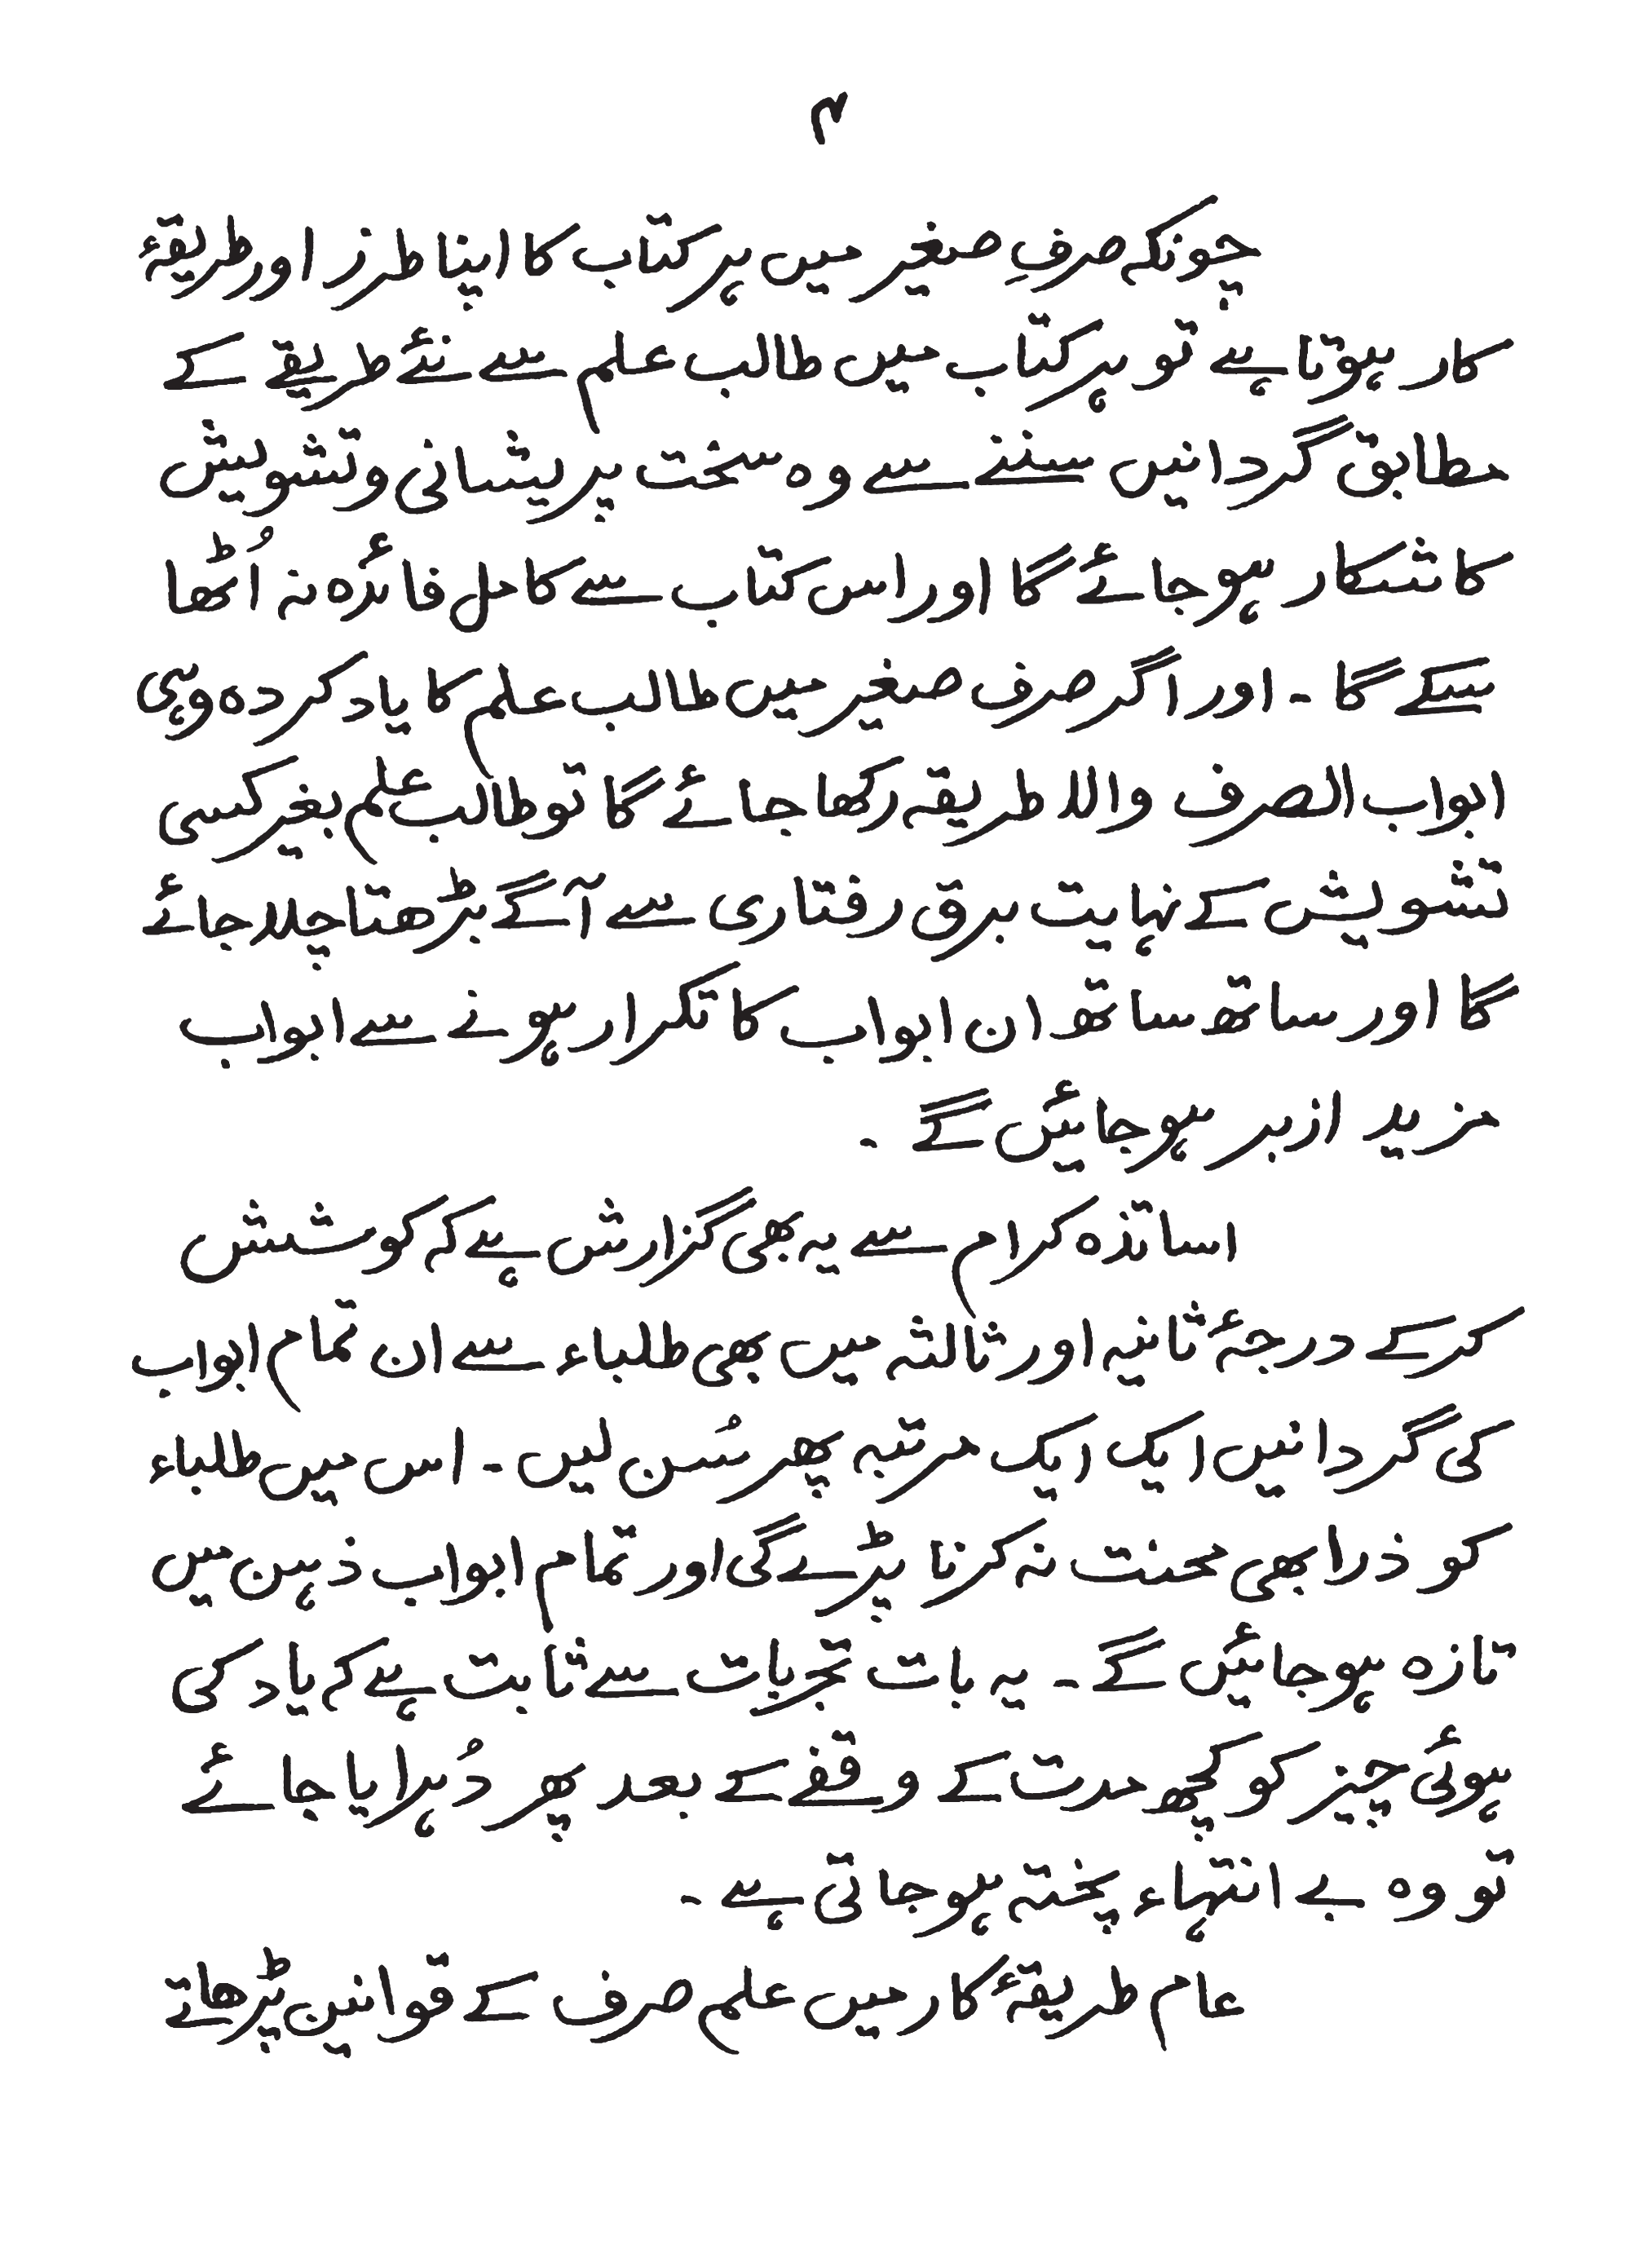 ۴
چونکہ صرفِ صغیر میں ہر کتاب کا اپنا طرز اور طریقۂ
کار ہوتا ہے تو ہر کتاب میں طالب علم سے نئے طریقے کے
مطابق گردانیں سننے سے وہ سخت پریشانی و تشویش
کا شکار ہو جائے گا اور اس کتاب سے کامل فائدہ نہ اُٹھا
سکے گا ۔ اور اگر صرف صغیر میں طالب علم کا یاد کردہ وہی
ابواب الصرف والا طریقہ رکھا جائے گا تو طالب علم بغیر کسی
تشویش کے نہایت برق رفتاری سے آگے بڑھتا چلا جائے
گا اور ساتھ ساتھ ان ابواب کا تکرار ہونے سے ابواب
مزید ازبر ہو جائیں گے ۔
اساتذہ کرام سے یہ بھی گزارش ہے کہ کوشش
کرکے درجۂ ثانیہ اور ثالثہ میں بھی طلباء سے ان تمام ابواب
کی گردانیں ایک ایک مرتبہ پھر سُن لیں ۔ اس میں طلباء
کو ذرا بھی محنت نہ کرنا پڑے گی اور تمام ابواب ذہن میں
تازہ ہو جائیں گے ۔ یہ بات تجربات سے ثابت ہے کہ یاد کی
ہوئی چیز کو کچھ مدت کے وقفے کے بعد پھر دُہرایا جائے
تو وہ بے انتہاء پختہ ہو جاتی ہے ۔
عام طریقۂ کار میں علم صرف کے قوانین پڑھاتے